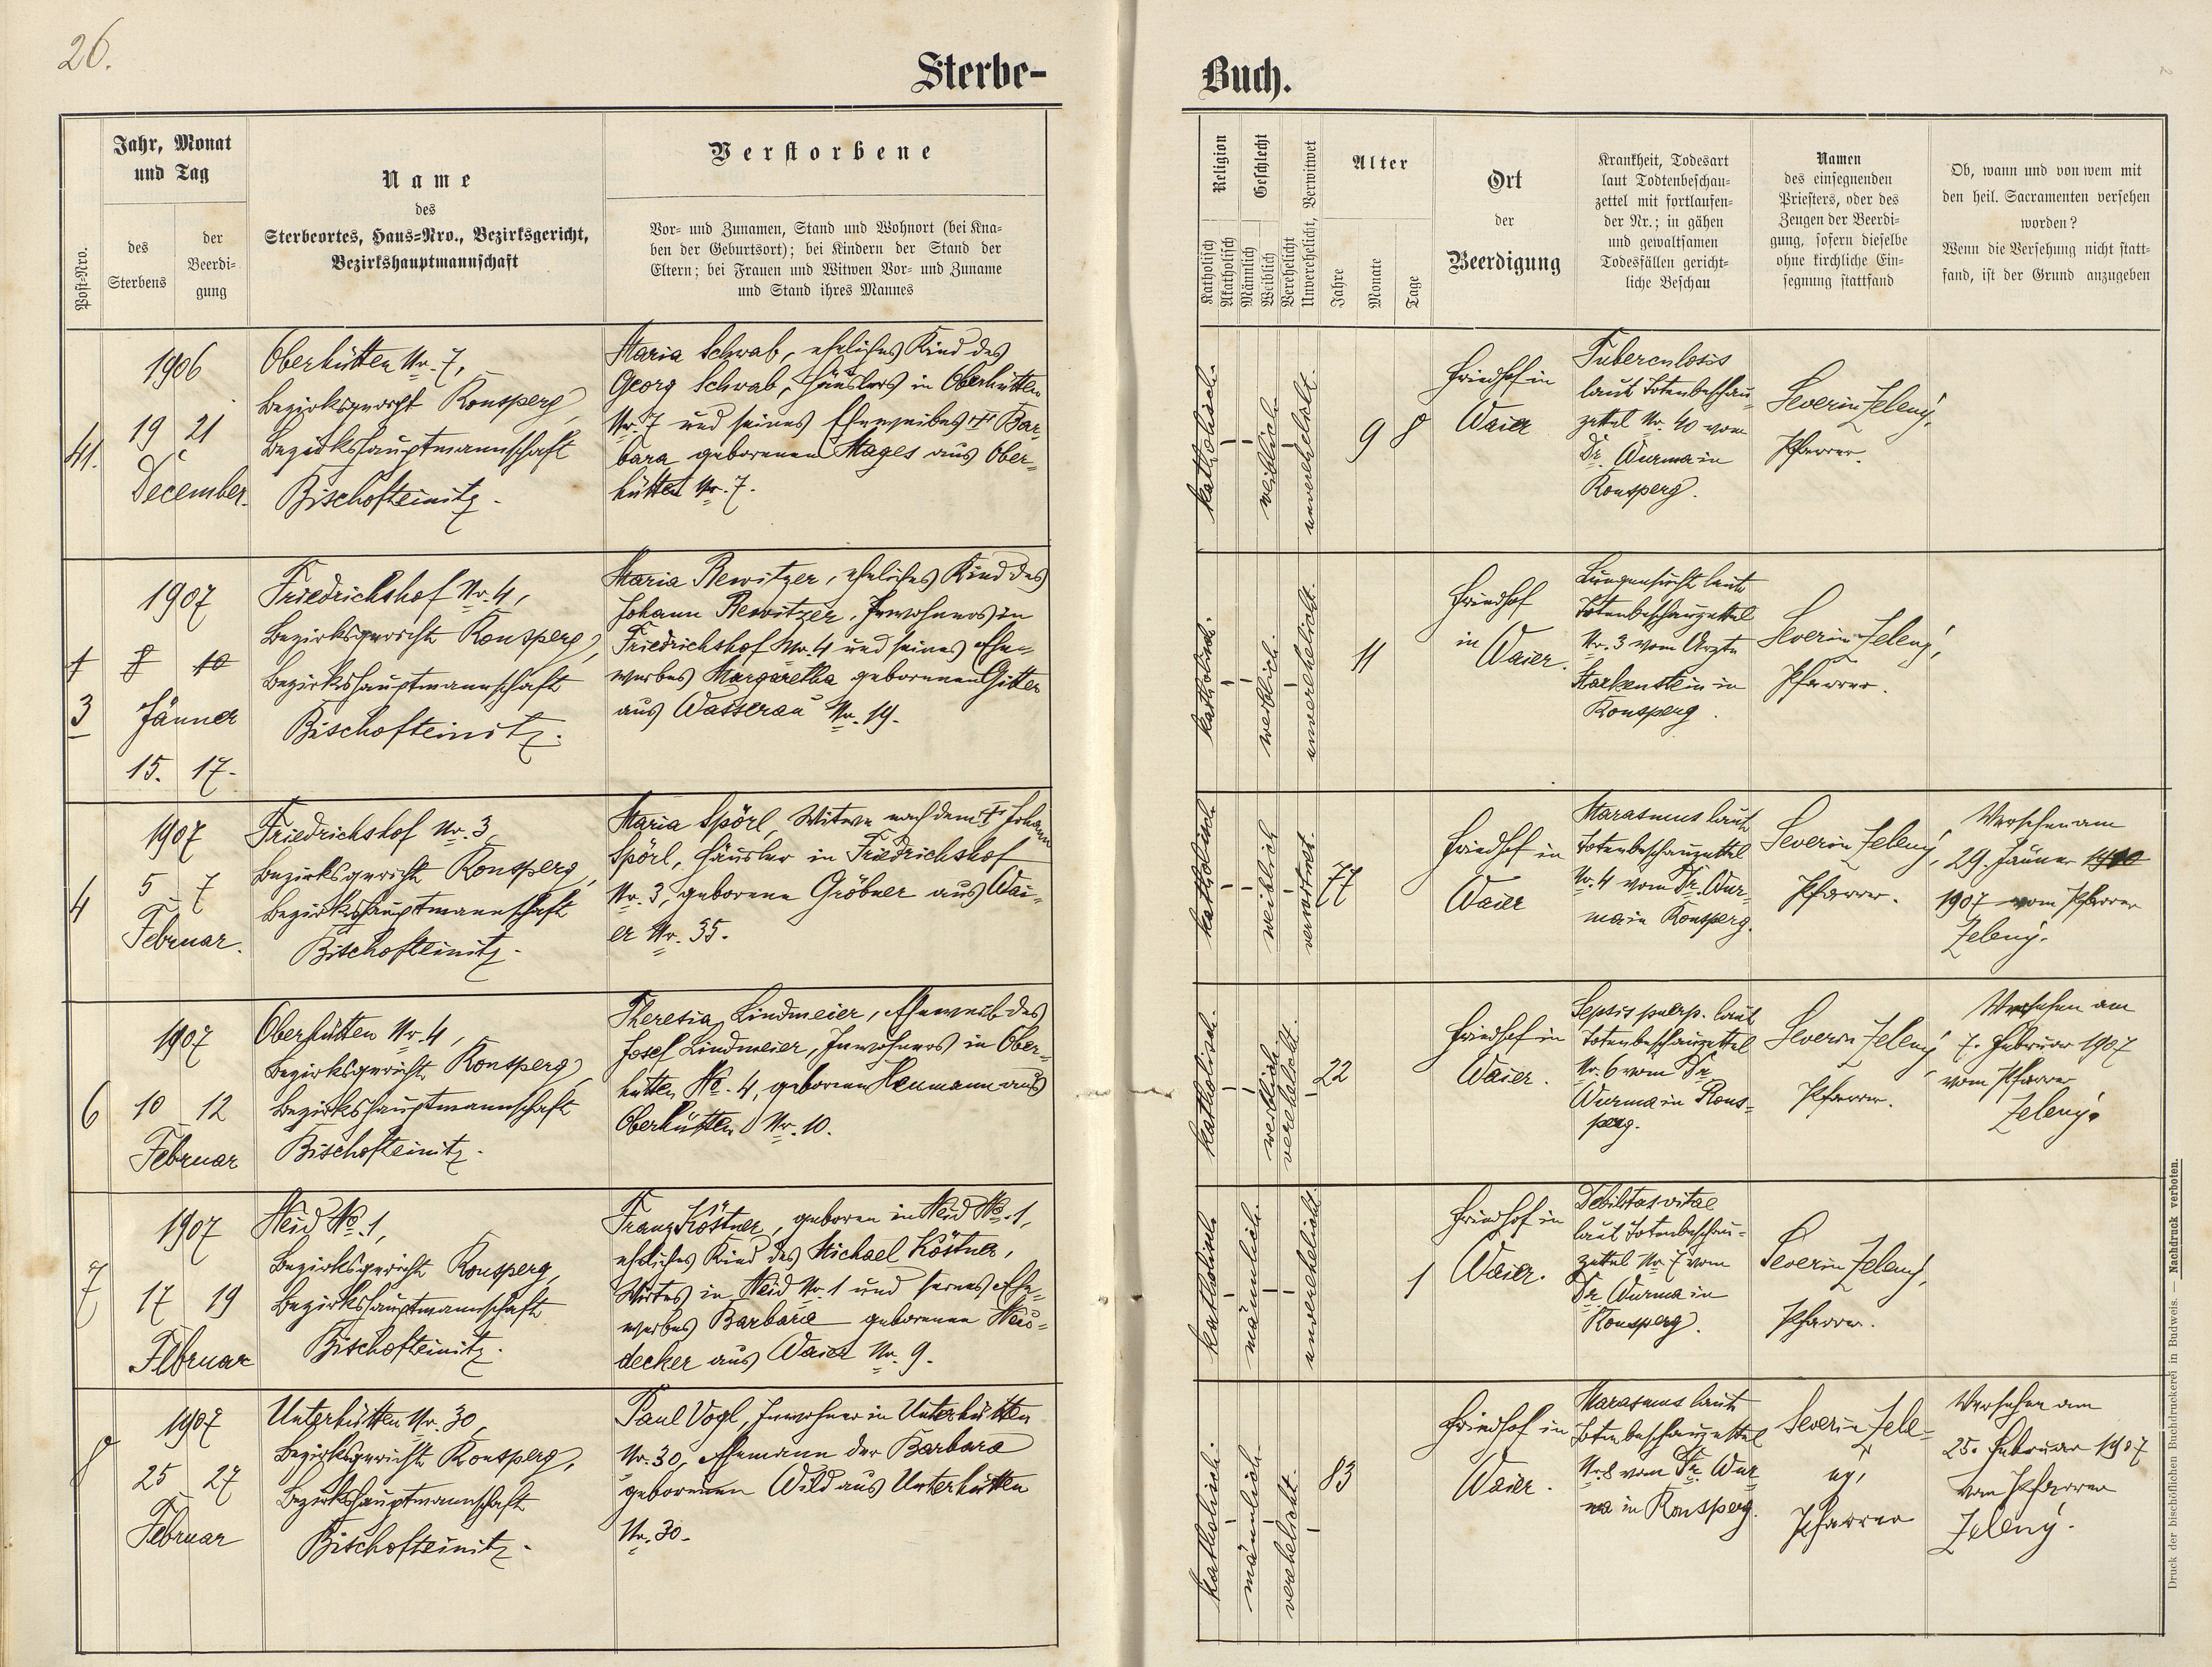 26.
Sterbe-
Buch.
Post-Nro.
Jahr, Monat
und Tag
des
Sterbens
der
Beerdi-
gung
Name
des
Sterbeortes, Haus-Nro., Bezirksgericht,
Bezirkshauptmannschaft
Verstorbene
Vor- und Zunamen, Stand und Wohnort (bei Kna-
ben der Geburtsort); bei Kindern der Stand der
Eltern; bei Frauen und Witwen Vor- und Zuname
und Stand ihres Mannes
Religion
Katholisch
Akatholisch
Geschlecht
Männlich
Weiblich
Verehelicht
Unverehelicht, Verwitwet
Alter
Jahre
Monate
Tage
Ort
der
Beerdigung
Krankheit, Todesart
laut Todtenbeschau-
zettel mit fortlaufen-
der Nr.; in gähen
und gewaltsamen
Todesfällen gericht-
liche Beschau
Namen
des einsegnenden
Priesters, oder des
Zeugen der Beerdi-
gung, sofern dieselbe
ohne kirchliche Ein-
segnung stattfand
Ob, wann und von wem mit
den heil. Sacramenten versehen
worden?
Wenn die Versehung nicht statt-
fand, ist der Grund anzugeben
41.
1906
19 21
December.
Oberhütten Nr. 7,
Bezirksgericht Ronsperg,
Bezirkshauptmannschaft
Bischofteinitz.
Maria Schwab, eheliches Kind des
Georg Schwab, Häuslers in Oberhütten
Nr. 7 und seines Eheweibes † Bar-
bara geborenen Mages aus Ober-
hütten Nr. 7.
katholisch
weiblich
unverehelicht.
9 8
Friedhof in
Waier
Tuberculosis
laut Totenbeschau-
zettel Nr. 40 vom
Dr. Wurma in
Ronsperg.
Severin Zelený,
Pfarrer.
1
3
1907
8 10
Jänner
15. 17.
Friedrichshof Nr. 4,
Bezirksgericht Ronsperg,
Bezirkshauptmannschaft
Bischofteinitz.
Maria Rewitzer, eheliches Kind des
Johann Rewitzer, Inwohners in
Friedrichshof Nr. 4 und seines Ehe-
weibes Margaretha geborenen Gitter
aus Wasserau Nr. 19.
katholisch.
weiblich.
unverehelicht.
11
Friedhof
in
Waier.
Lungensucht laut
Totenbeschauzettel
Nr. 3 vom Arzte
Starkenstein in
Ronsperg.
Severin Zelený,
Pfarrer.
4
1907
5 7
Februar.
Friedrichshof Nr. 3,
Bezirksgericht Ronsperg,
Bezirkshauptmannschaft
Bischofteinitz.
Maria Spörl, Witwe nach dem † Johann
Spörl, Häusler in Friedrichshof
Nr. 3, geborene Gröbner aus Wai-
er Nr. 35.
katholisch
weiblich
verwitwet.
77
Friedhof in
Waier
Marasmus laut
Totenbeschauzettel
Nr. 4 vom Dr. Wur-
ma in Ronsperg.
Severin Zelený,
Pfarrer.
Versehen am
29. Jänner
1907 vom Pfarrer
Zelený.
6
1907
10 12
Februar
Oberhütten Nr. 4,
Bezirksgericht Ronsperg,
Bezirkshauptmannschaft
Bischofteinitz.
Theresia Lindmeier, Eheweib des
Josef Lindmeier, Inwohners in Ober-
hütten No. 4, geborenen Heumann aus
Oberhütten Nr. 10.
katholisch.
weiblich.
verehelicht.
22
Friedhof in
Waier.
Sepsis puerp. laut
Totenbeschauzettel
Nr. 6 vom Dr.
Wurma in Rons-
perg.
Severin Zelený,
Pfarrer.
Versehen am
7. Februar 1907
vom Pfarrer
Zelený.
7
1907
17 19
Februar
Neid No. 1,
Bezirksgericht Ronsperg,
Bezirkshauptmannschaft
Bischofteinitz.
Franz Köstner, geboren in Neid No. 1,
eheliches Kind des Michael Köstner,
Wirtes in Neid Nr. 1 und seines Ehe-
weibes Barbara geborenen Neu-
decker aus Waier Nr. 9.
katholisch
männlich.
unverehelicht.
1
Friedhof in
Waier.
Debilitas vitae
laut Totenbeschau-
zettel Nr. 7 vom
Dr. Wurma in
Ronsperg.
Severin Zelený,
Pfarrer.
8
1907
25 27
Februar
Unterhütten Nr. 30,
Bezirksgericht Ronsperg,
Bezirkshauptmannschaft
Bischofteinitz.
Paul Vogl, Inwohner in Unterhütten
Nr. 30, Ehemann der Barbara
geborenen Wild aus Unterhütten
Nr. 30.
katholisch.
männlich
verehelicht.
83
Friedhof in
Waier.
Marasmus laut
Totenbeschauzettel
Nr. 8 vom Dr. Wur
ma in Ronsperg.
Severin Zele-
ný,
Pfarrer
Versehen am
25. Februar 1907
vom Pfarrer
Zelený.
Druck der bischöflichen Buchdruckerei in Budweis. — Nachdruck verboten.